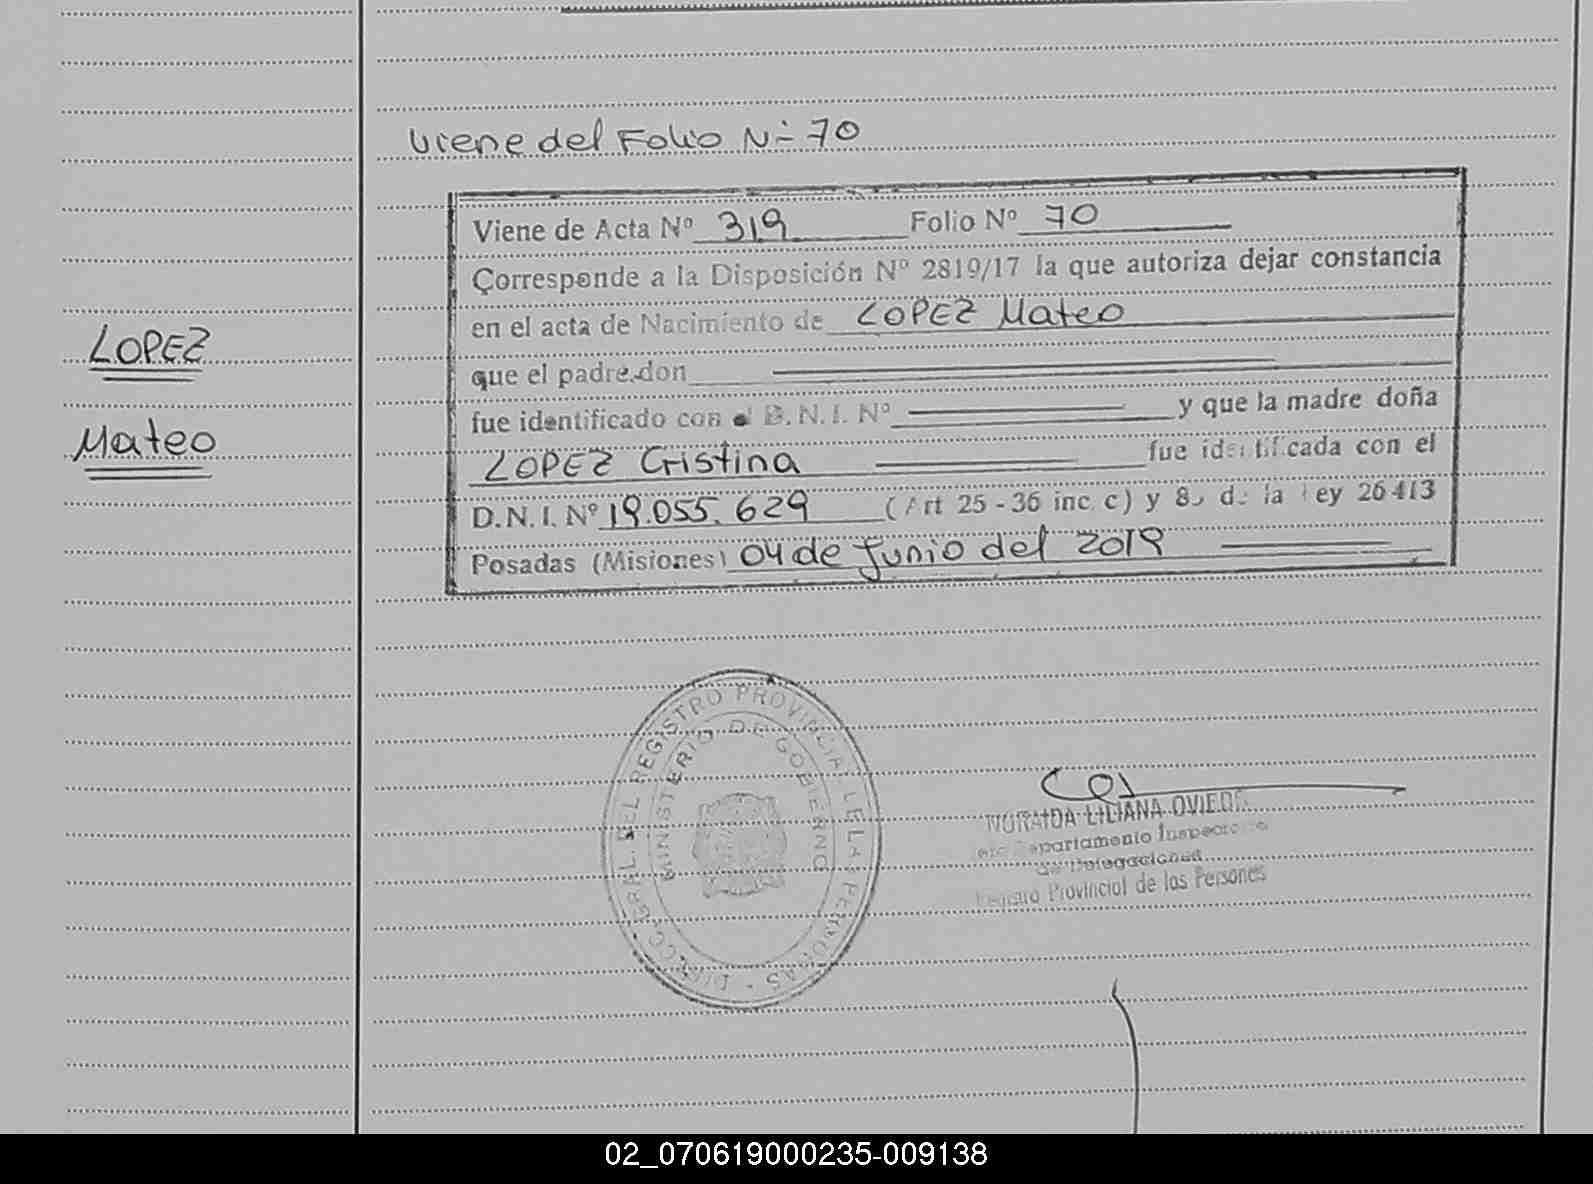 Viene del Folio Nº 70
Viene de Acta Nº 319 Folio Nº 70
Corresponde a la Disposición Nº 2819/17 la que autoriza dejar constancia
en el acta de Nacimiento de LOPEZ Mateo
que el padre don
fue identificado con el D.N.I. Nº y que la madre doña
LOPEZ Cristina fue identificada con el
D.N.I. Nº 19.055.629 (Art 25 - 36 inc. c) y 85 de la ley 26413
Posadas (Misiones) 04 de Junio del 2019
LOPEZ
Mateo
DIRECC. GRAL. DEL REGISTRO PROVINCIAL DE LAS PERSONAS
MINISTERIO DE GOBIERNO
NORAIDA LILIANA OVIEDO
Departamento Inspección
de Delegaciones
Registro Provincial de las Personas
02_070619000235-009138